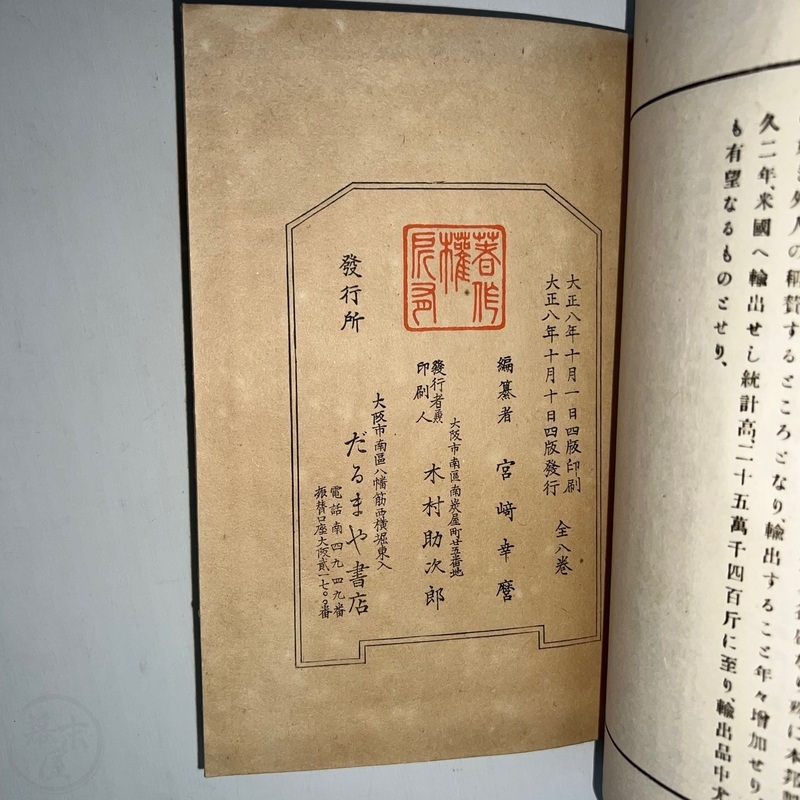 外人の稱賛するところとなり、輸出すること年々增加せり、
久二年、米國へ輸出せし統計高、二十五萬千四百斤に至り、輸出品中尤
も有望なるものとせり、
大正八年十月一日四版印刷
大正八年十月十日四版發行
全八巻
編纂者 宮﨑幸麿
著作權所有
大阪市南區南炭屋町廿五番地
發行者兼
印刷人
木村助次郎
發行所
大阪市南區八幡筋西橫堀東入
だるまや書店
電話南四九四九番
振替口座大阪貳一七〇〇番